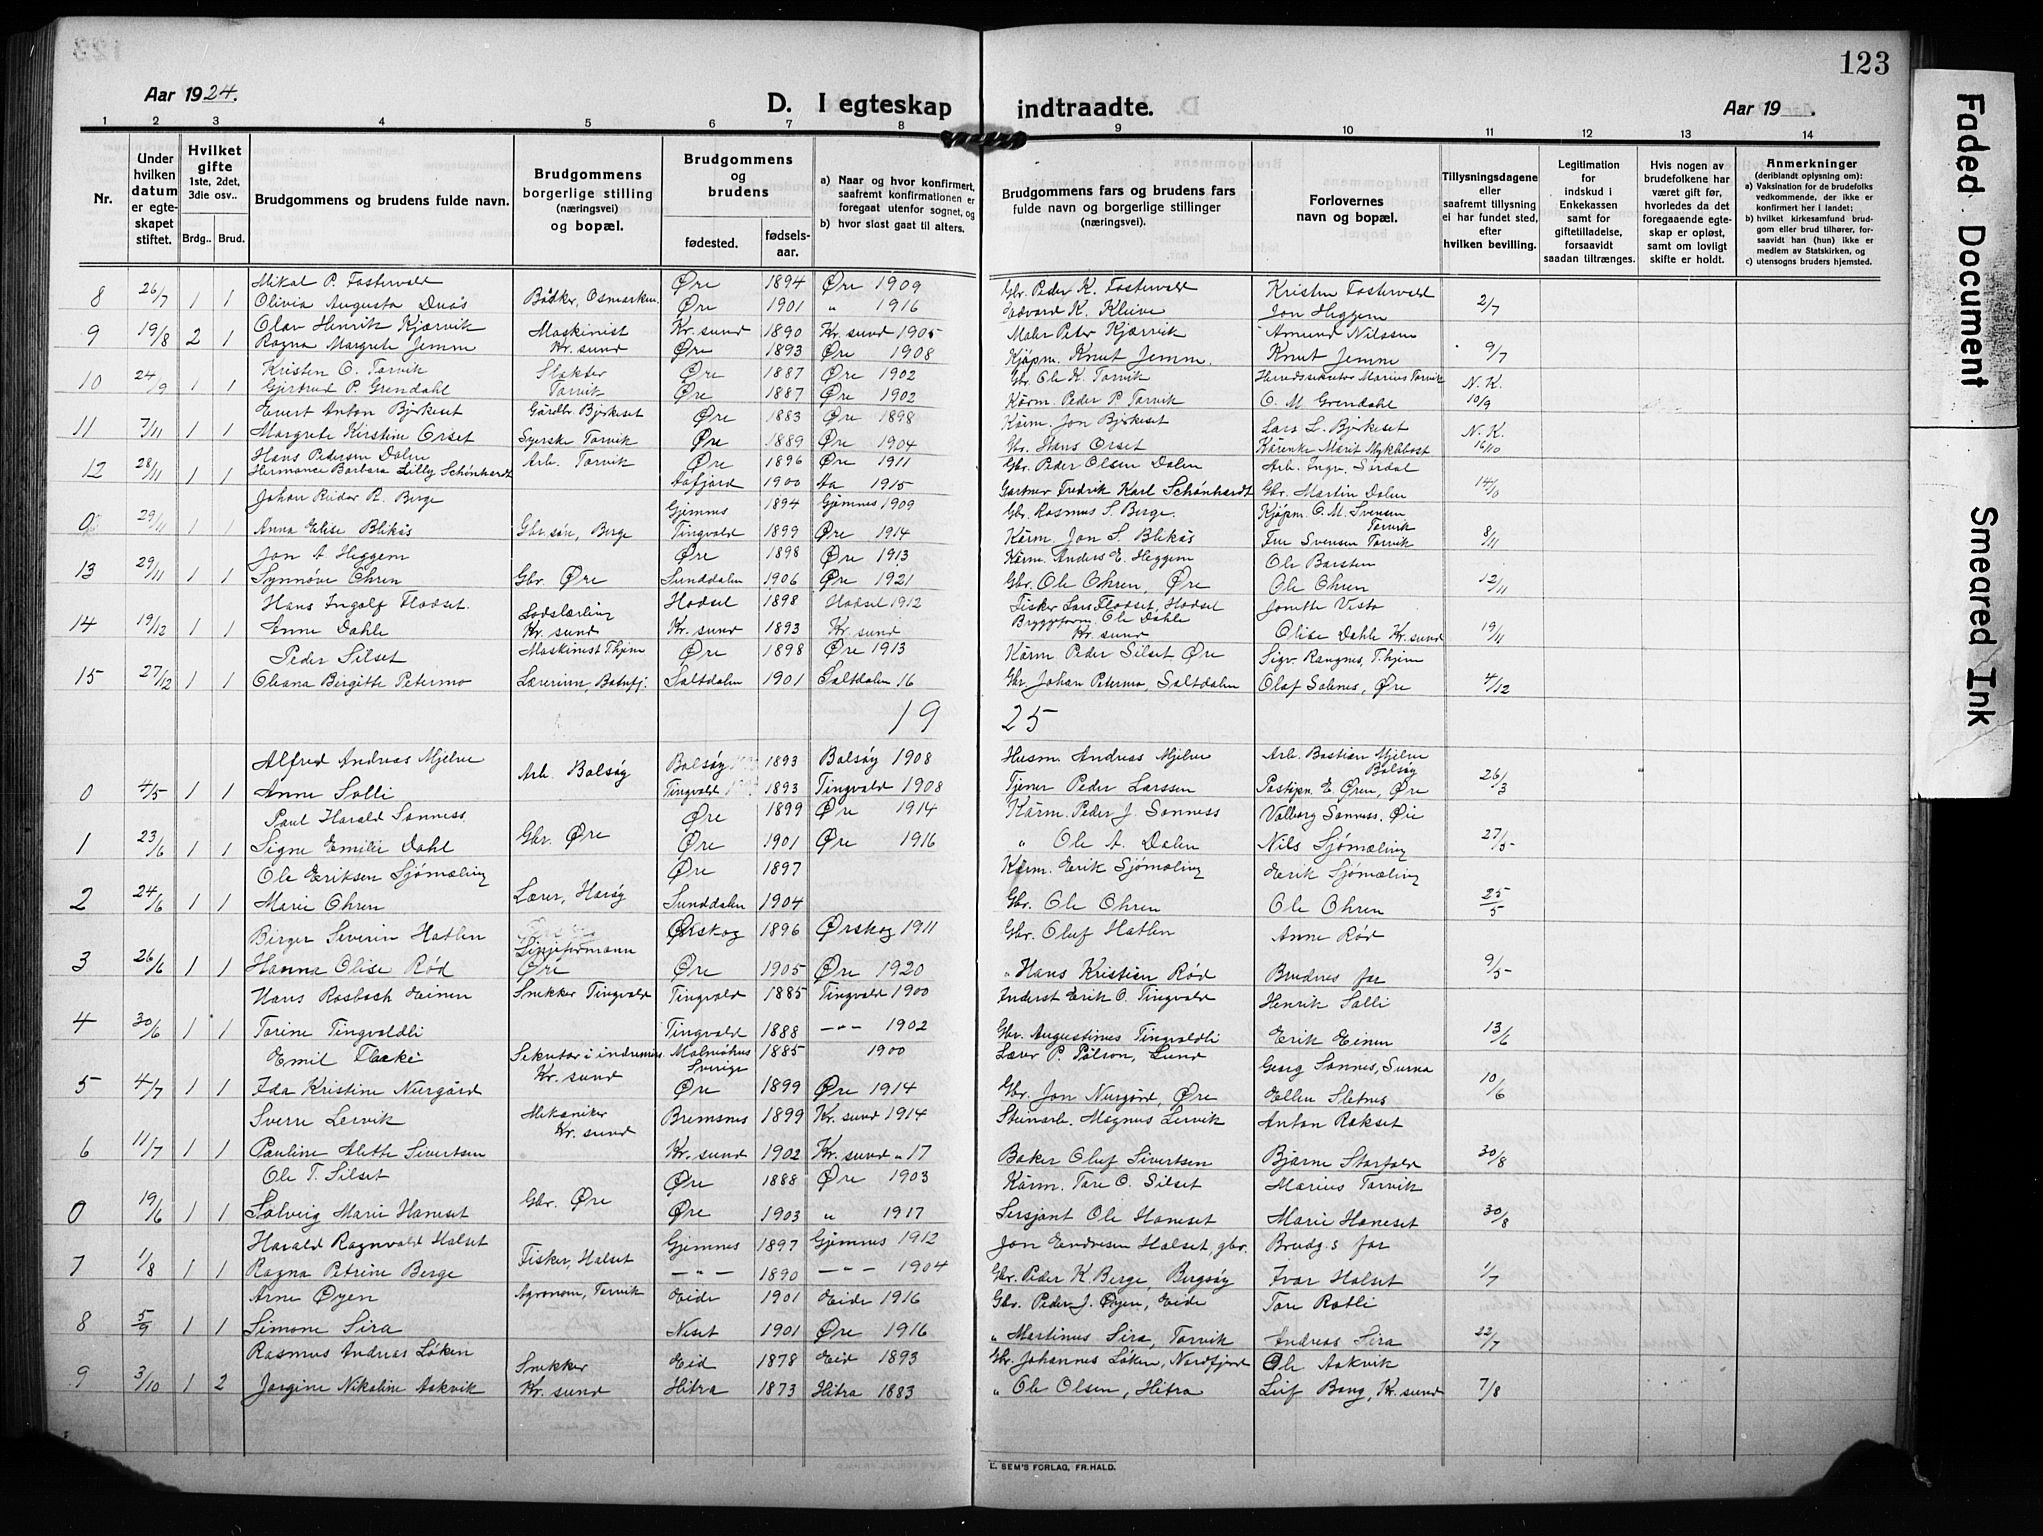 123
Aar 1924.
D. I egteskap indtraadte.
Aar 19 .
1 2 3 4 5 6 7 8 9 10 11 12 13 14
Nr.
Under hvilken datum er egteskapet stiftet.
Hvilket gifte 1ste, 2det, 3die osv..
Brdg.. Brud.
Brudgommens og brudens fulde navn.
Brudgommens borgerlige stilling (næringsvei) og bopæl.
Brudgommens og brudens
fødested. fødselsaar.
a) Naar og hvor konfirmert, saafremt konfirmationen er foregaat utenfor sognet, og
b) hvor sidst gaat til alters.
Brudgommens fars og brudens fars fulde navn og borgerlige stillinger (næringsvei).
Forlovernes navn og bopæl.
Tillysningsdagene eller saafremt tillysning ei har fundet sted, efter hvilken bevilling.
Legitimation for indskud i Enkekassen samt for giftetilladelse, forsaavidt saadan tiltrænges.
Hvis nogen av brudefolkene har været gift før, hvorledes da det foregaaende egteskap er opløst, samt om lovligt skifte er holdt.
Anmerkninger (deriblandt oplysning om):
a) Vaksination for de brudefolks vedkommende, der ikke er konfirmert her i landet;
b) hvilket kirkesamfund brudgom eller brud tilhører, forsaavidt han (hun) ikke er medlem av Statskirken, og
c) utensogns bruders hjemsted.
Mikal P. Fostervold Øre 1894 Øre 1909 Gbr. Peder K. Fostervold Kristen Fostervold
8 26/7 1 1 Olivia Augusta Duås Bødker, Osmarken. Øre 1901 " 1916 Edvard K. Kleive Jon Heggem 2/7
Olav Henrik Kjærvik Maskinist Kr. sund 1890 Kr. sund 1905 Maler Peter Kjærvik Amund Nilssen
9 19/8 2 1 Ragna Margrete Jemne Kr. sund Øre 1893 Øre 1908 Kjøpm. Knut Jemne. Knut Jemne 9/7
Kristen O. Torvik Slakter Øre 1887 Øre 1902 Gbr. Ole K. Torvik Herredssekretær Marius Torvik N. K.
10 24/9 1 1 Gjertrud P. Grendahl Torvik Øre 1887 Øre 1902 Kårm. Peder P. Torvik O. M. Grendahl 10/9
Evert Anton Bjerkeset Gårdbr. Bjerkeset Øre 1883 Øre 1898 Kårm. Jon Bjerkeset Lars L. Bjerkeset
11 7/11 1 1 Margrete Kirstine Orset Syerske Torvik Øre 1889 Øre 1904 Gbr. Hans Orset Kårenke Marit Myklebost N. K. 16/10
Hans Pedersen Dalen Arb. Torvik Øre 1896 Øre 1911 Gbr. Peder Olsen Dalen Arb. Ingv. Sørdal
12 28/11 1 1 Hermance Barbara Lilly Schønhardt Aafjord 1900 Aa 1915 Gartner Fredrik Karl Schønhardt Gbr. Martin Dalen
Johan Peder R. Berge Gjemnes 1894 Gjemnes 1909 Gbr. Rasmus S. Berge. Kjøpm. O. M. Svensen Torvik
0 29/11 1 1 Anna Elise Blikås Gbr. søn, Berge Tingvold 1899 Øre 1914 Kårm. Jon S. Blikås Fru Svensen Torvik 8/11
Jon A. Heggem Øre 1898 Øre 1913 Kårm. Anders E. Heggem Ole Barsten
13 29/11 1 1 Synnøve Ohren Gbr. Øre Sunddalen 1906 Øre 1921 Gbr. Ole Ohren, Øre Ole Ohren 12/11
Hans Ingolf Flodset. Lodslærling Hadsel 1898 Hadsel 1912 Fisker Lars Flodset, Hadsel Jonette Visto
14 19/12 1 1 Anne Dahle Kr. sund Kr. sund 1893 Kr. sund Bryggeform. Ole Dahle Kr. sund Olise Dahle Kr. sund 19/11
Peder Silset Maskinist Thjem Øre 1898 Øre 1913 Kårm. Peder Silset Øre Sigv. Rangnes, Thjem
15 27/12 1 1 Oleana Bergitte Petermo Lærerinn, Batnfj. Saltdalen 1901 Saltdalen 16 Gbr. Johan Petermo, Saltdalen Olaf Solenes, Øre 4/12
19 25
Alfred Andreas Mjelve Arb. Bolsøy Bolsøy 1893 Bolsøy 1908 Husm. Andreas Mjelve Arb. Bastian Mjelve Bolsøy
0 4/5 1 1 Anne Solli Tingvold 1893 Tingvold 1908 Tjener Peder Larssen Postexp. E. Øren, Øre 26/3
Paul Harald Sonness. Øre 1899 Øre 1914 Kårm. Peder J. Sonness Valborg Sonness. Øre
1 23/6 1 1 Signe Emilie Dahl Gbr. Øre Øre 1901 Øre 1916 " Ole A. Dalen Nils Sjømæling 27/5
Ole Eriksen Sjømæling Øre 1897 Kårm. Erik Sjømæling Erik Sjømæling
2 24/6 1 1 Marie Ohren Lærer, Harøy Sunddalen 1904 Gbr. Ole Ohren Ole Ohren 25/5
Birger Severin Hatlen Linjeformann Ørskog 1896 Ørskog 1911 Gbr. Oluf Hatlen Anne Rød
3 26/6 1 1 Hanna Olise Rød Øre Øre 1905 Øre 1920 " Hans Kristian Rød Brudnes far 9/5
Hans Rosbach Einen Snekker Tingvold Tingvold 1885 Tingvold 1900 Inderst Erik O. Tingvold Henrik Solli
4 30/6 1 1 Torine Tingvoldli Tingvold 1888 —"— 1902 Gbr. Augustinus Tingvoldli Erik Einen 13/6
Emil Flacke Sekretær i indremis. Malmøhus Sverige 1885 1900 Lærer P. Pålson, Lund Georg Sonnes, Surna
5 4/7 1 1 Ida Kristine Nergård Kr. sund Øre 1899 Øre 1914 Gbr. Jon Nergård, Øre Ellen Sletnes 10/6
Sverre Lervik Mekaniker Bremsnes 1899 Kr. sund 1914 Stenarb. Magnus Lervik Anton Rokset
6 11/7 1 1 Pauline Alette Sivertsen Kr. sund Kr. sund 1902 Kr. sund " 17 Baker Oluf Sivertsen Bjarne Storfold 30/8
Ole T. Silset Øre 1888 Øre 1903 Kårm. Tore O. Silset Marius Torvik
0 19/6 1 1 Solveig Marie Haneset Gbr. Øre Øre 1903 " 1917 Sersjant Ole Haneset Marie Haneset 30/8
Harald Ragnvald Halset Fisker, Halset Gjemnes 1897 Gjemnes 1912 Jon Endresen Halset, gbr. Brudg.s far
7 1/8 1 1 Ragna Petrine Berge —"— 1890 —"— 1904 Gbr. Peder K. Berge, Bergsøy Ivar Halset 1/7
Arne Øyen Agronom, Torvik Eide 1901 Eide 1916 Gbr. Peder J. Øyen, Eide Tore Rotli
8 5/9 1 1 Simone Sira Neset 1901 Øre 1916 " Martinus Sira, Torvik Andreas Sira 22/7
Rasmus Andreas Løken Snekker Eid 1878 Eid 1893 Gbr. Johannes Løken, Nordfjord Ole Aakvik
9 3/10 1 2 Jørgine Nikoline Aakvik Kr. sund Hitra 1873 Hitra 1883 " Ole Olsen, Hitra Leif Bang, Kr. sund 7/8
L. SEM'S FORLAG, FR.HALD.
Faded Document
Smeared Ink